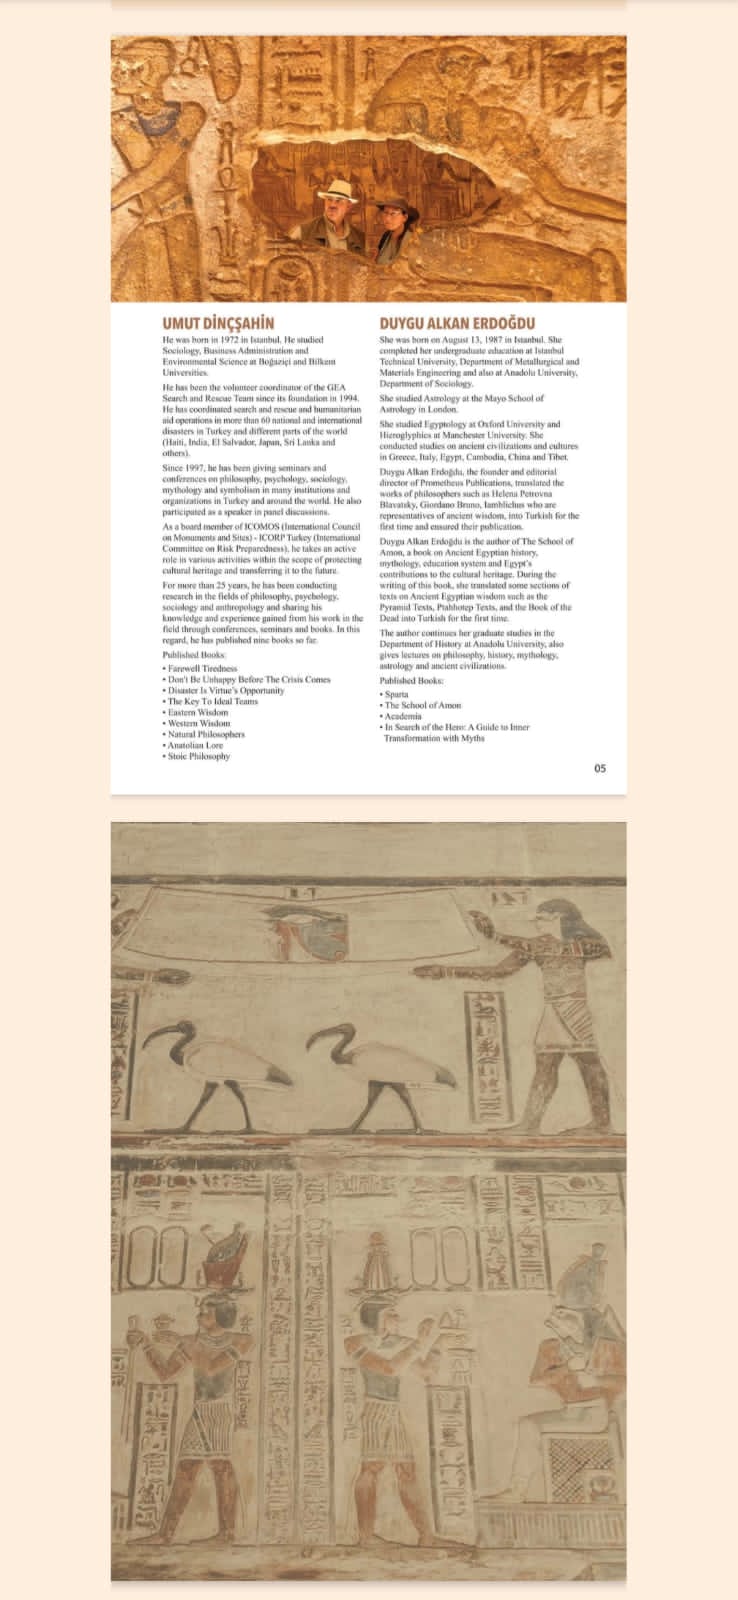 UMUT DİNÇŞAHİN
He was born in 1972 in Istanbul. He studied
Sociology, Business Administration and
Environmental Science at Boğaziçi and Bilkent
Universities.
He has been the volunteer coordinator of the GEA
Search and Rescue Team since its foundation in 1994.
He has coordinated search and rescue and humanitarian
aid operations in more than 60 national and international
disasters in Turkey and different parts of the world
(Haiti, India, El Salvador, Japan, Sri Lanka and
others).
Since 1997, he has been giving seminars and
conferences on philosophy, psychology, sociology,
mythology and symbolism in many institutions and
organizations in Turkey and around the world. He also
participated as a speaker in panel discussions.
As a board member of ICOMOS (International Council
on Monuments and Sites) - ICORP Turkey (International
Committee on Risk Preparedness), he takes an active
role in various activities within the scope of protecting
cultural heritage and transferring it to the future.
For more than 25 years, he has been conducting
research in the fields of philosophy, psychology,
sociology and anthropology and sharing his
knowledge and experience gained from his work in the
field through conferences, seminars and books. In this
regard, he has published nine books so far.
Published Books:
• Farewell Tiredness
• Don't Be Unhappy Before The Crisis Comes
• Disaster Is Virtue's Opportunity
• The Key To Ideal Teams
• Eastern Wisdom
• Western Wisdom
• Natural Philosophers
• Anatolian Lore
• Stoic Philosophy
DUYGU ALKAN ERDOĞDU
She was born on August 13, 1987 in Istanbul. She
completed her undergraduate education at Istanbul
Technical University, Department of Metallurgical and
Materials Engineering and also at Anadolu University,
Department of Sociology.
She studied Astrology at the Mayo School of
Astrology in London.
She studied Egyptology at Oxford University and
Hieroglyphics at Manchester University. She
conducted studies on ancient civilizations and cultures
in Greece, Italy, Egypt, Cambodia, China and Tibet.
Duygu Alkan Erdoğdu, the founder and editorial
director of Prometheus Publications, translated the
works of philosophers such as Helena Petrovna
Blavatsky, Giordano Bruno, Iamblichus who are
representatives of ancient wisdom, into Turkish for the
first time and ensured their publication.
Duygu Alkan Erdoğdu is the author of The School of
Amon, a book on Ancient Egyptian history,
mythology, education system and Egypt's
contributions to the cultural heritage. During the
writing of this book, she translated some sections of
texts on Ancient Egyptian wisdom such as the
Pyramid Texts, Ptahhotep Texts, and the Book of the
Dead into Turkish for the first time.
The author continues her graduate studies in the
Department of History at Anadolu University, also
gives lectures on philosophy, history, mythology,
astrology and ancient civilizations.
Published Books:
• Sparta
• The School of Amon
• Academia
• In Search of the Hero: A Guide to Inner
Transformation with Myths
05